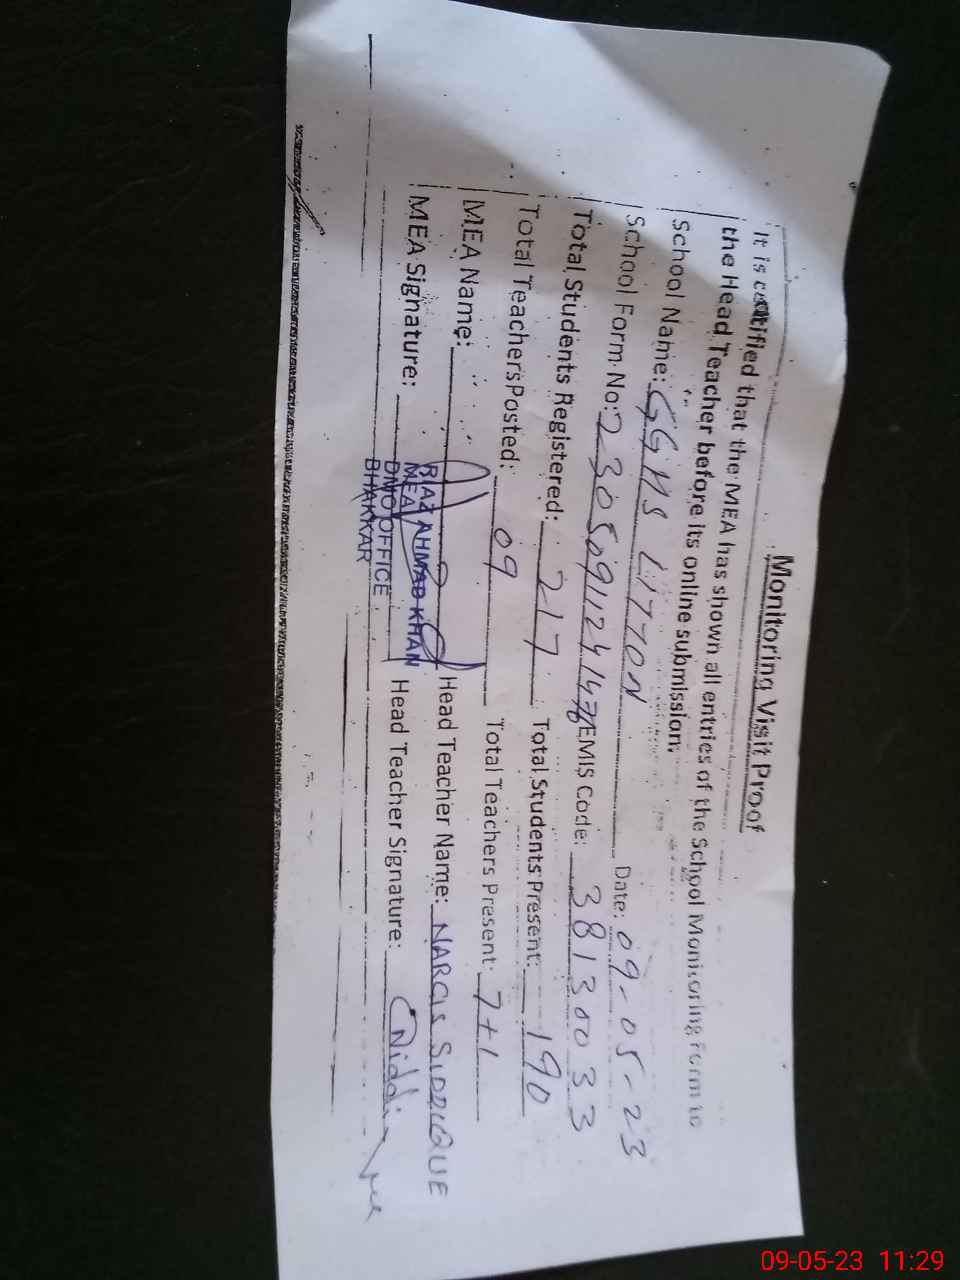 Monitoring Visit Proof
It is certified that the MEA has shown all entries of the School Monitoring Form to
the Head Teacher before its online submission.
School Name: GGHS LITTON Date: 09-05-23
School Form No: EMIS Code: 38130033
Total Students Registered: 217 Total Students Present: 190
Total Teachers Posted: 09 Total Teachers Present: 7+1
MEA Name: Head Teacher Name: NARGIS SIDDIQUE
MEA Signature: Head Teacher Signature:
RIAZ AHMAD KHAN
MEA
DMO OFFICE
BHAKKAR
09-05-23 11:29